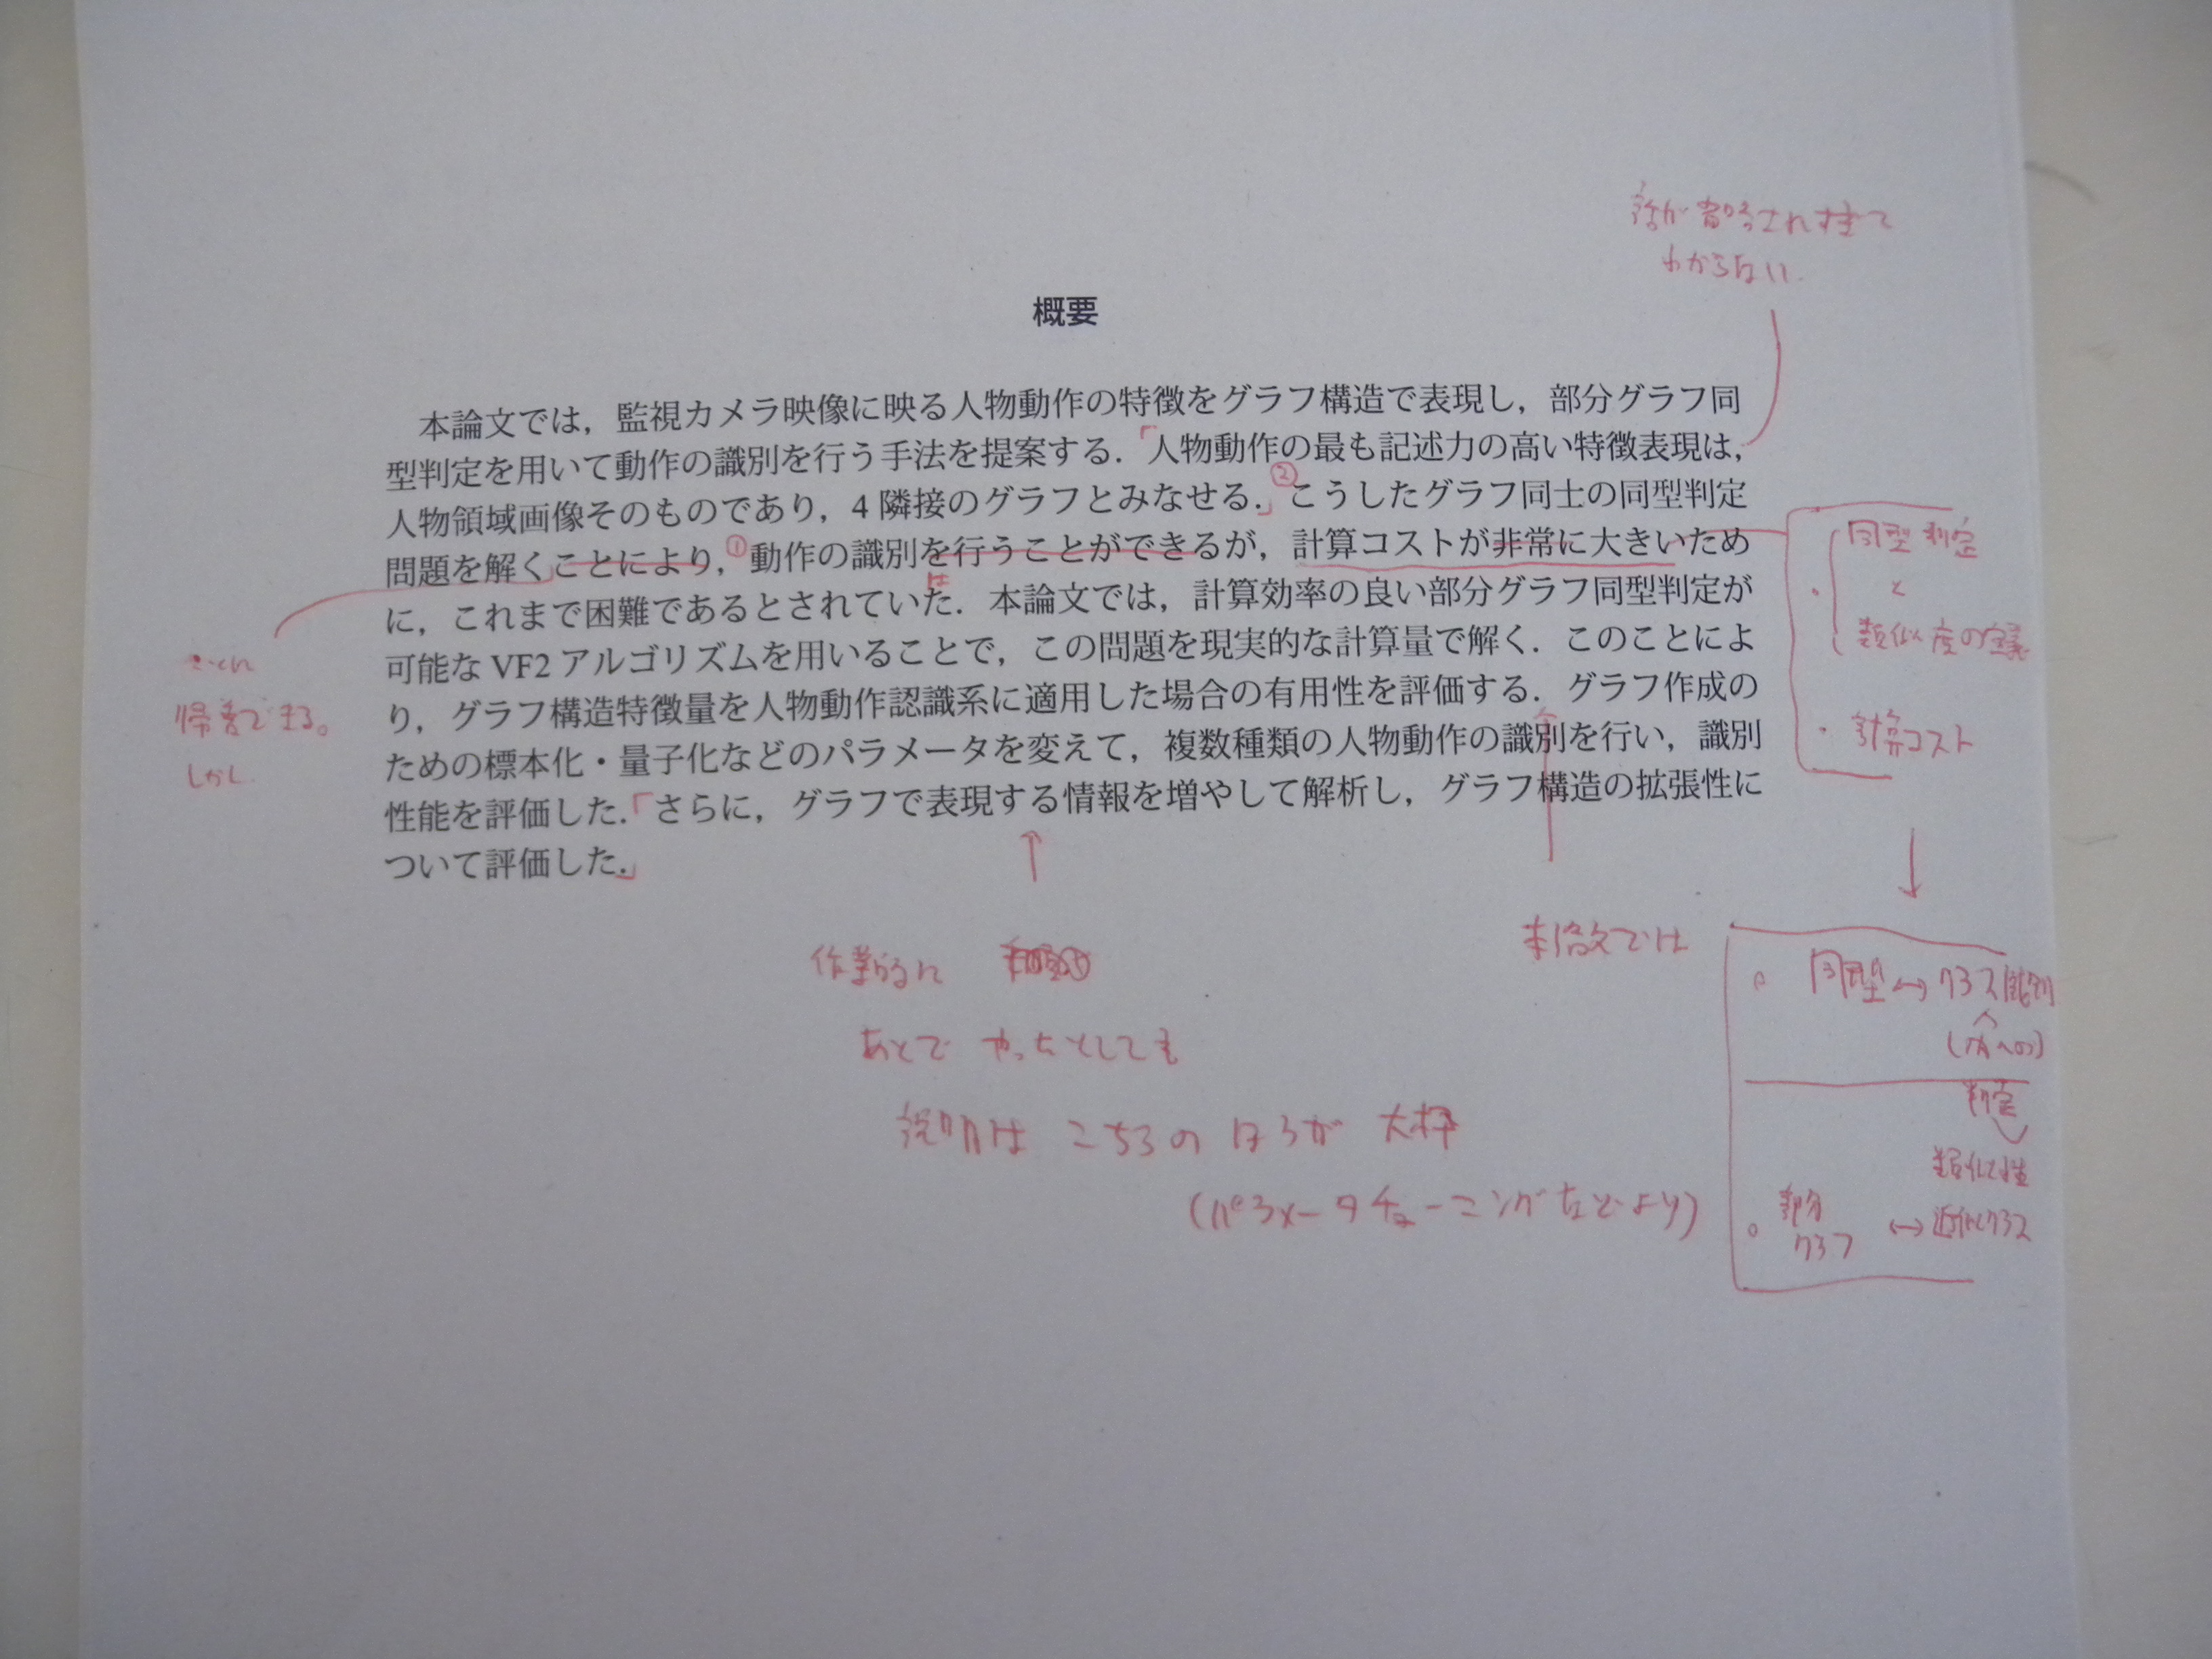 話が省略されすぎて
わからない.
概要
本論文では，監視カメラ映像に映る人物動作の特徴をグラフ構造で表現し，部分グラフ同
型判定を用いて動作の識別を行う手法を提案する．「人物動作の最も記述力の高い特徴表現は，
人物領域画像そのものであり，4 隣接のグラフとみなせる．」②こうしたグラフ同士の同型判定
問題を解く」ことにより，①動作の識別を行うことができるが，計算コストが非常に大きいため
は
に，これまで困難であるとされていた．本論文では，計算効率の良い部分グラフ同型判定が
可能な VF2 アルゴリズムを用いることで，この問題を現実的な計算量で解く．このことによ
り，グラフ構造特徴量を人物動作認識系に適用した場合の有用性を評価する．グラフ作成の
ための標本化・量子化などのパラメータを変えて，複数種類の人物動作の識別を行い，識別
性能を評価した．「さらに，グラフで表現する情報を増やして解析し，グラフ構造の拡張性に
ついて評価した．」
帰着できる。
しかし.
同型判定
と
類似度の定義
・計算コスト
作業的に
あとで やったとしても
説明は こちらの ほうが 大枠
(パラメータチューニングなどより)
本論文では
同型 ↔ クラス識別
(への)
判定
類似性
部分
グラフ ↔ 近似クラス